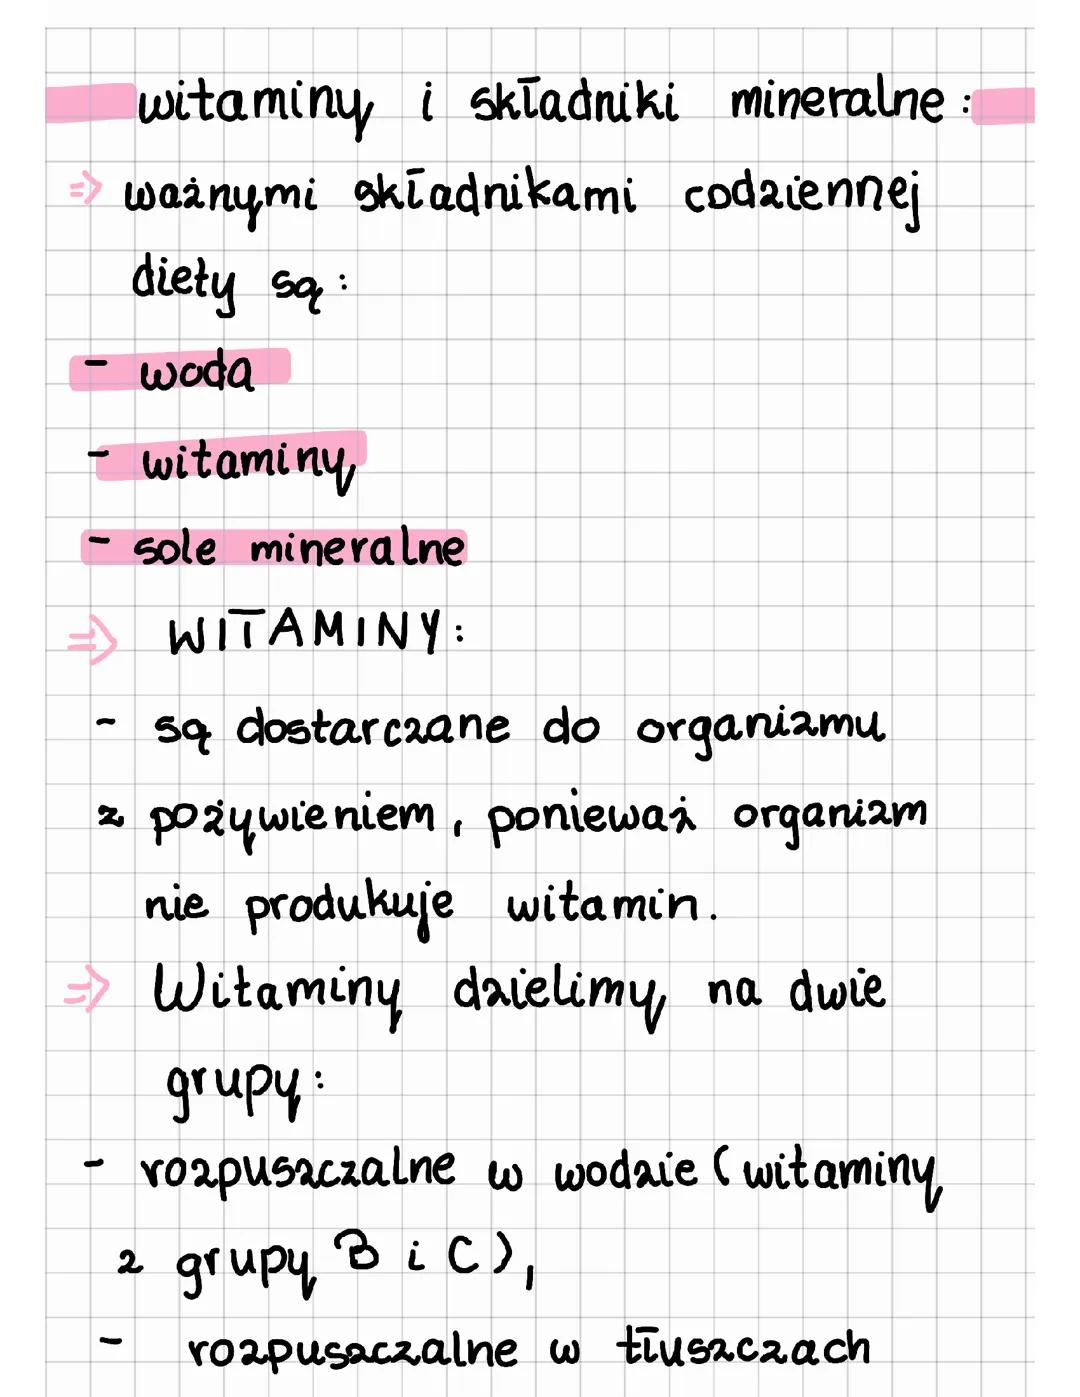 witaminy i składniki mineralne:
=> ważnymi składnikami codziennej
diety są:
- woda
- witaminy
- sole mineralne
=> WITAMINY:
- są dostarczane do organizmu
z pożywieniem, ponieważ organizm
nie produkuje witamin.
=> Witaminy dzielimy na dwie
grupy:
- rozpuszczalne w wodzie (witaminy
z grupy B i C),
- rozpuszczalne w tłuszczach